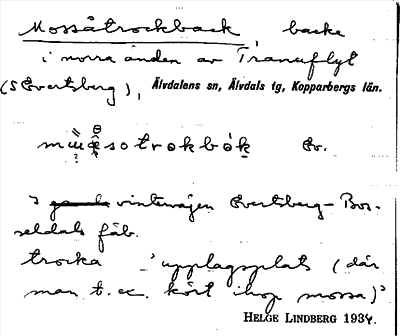 Mossåtrockback, backe
i norra änden av Tranuflyt
(S Evertsberg), Älvdalens sn, Älvdals tg, Kopparbergs län.
Ev.
I vintervägen Evertsberg - Bos-
seldals fäb.
trocka 'upplagsplats (där
man t. ex. kört ihop mossa)'
HELGE LINDBERG 1934.